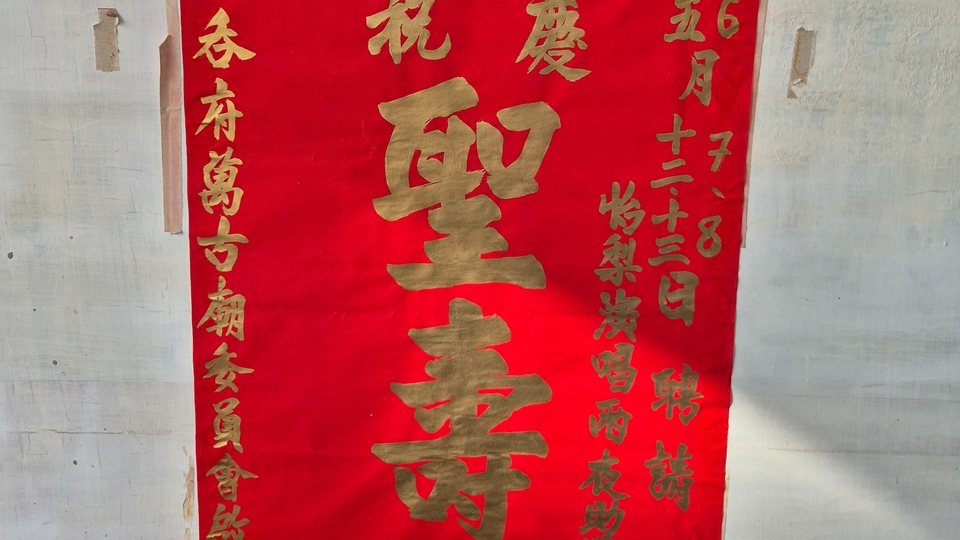 6
7、8
五月十二·十三日聘請
怡梨演唱兩夜助
慶祝
聖壽
吞府萬古廟委員會啟